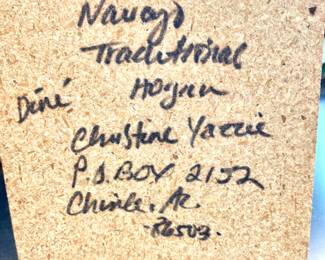 Navajo
Traditional
Diné Hogan
Christine Yazzie
P.O. BOX 2152
Chinle, Az.
86503.